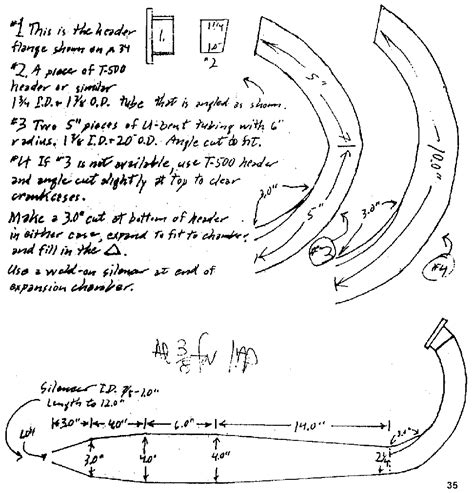 #1 This is the header
flange shown on p 34
#2 A piece of T-500
header or similar
1¾ I.D. & 1⅞ O.D. tube that is angled as shown.
#3 Two 5" pieces of U-bent tubing with 6"
radius. 1⅞ I.D. & 2.0" O.D. Angle cut to fit.
#4 If #3 is not available, use T-500 header
and angle cut slightly at top to clear
crankcases.
Make a 3.0" cut at bottom of header
in either case, expand to fit to chamber,
and fill in the Δ.
Use a weld-on silencer at end of
expansion chamber.
1.
1¾
1.0"
#2
5"
5"
3.0"
#3
10.0"
3.0"
#4
Silencer I.D. ⅞-1.0"
Length to 12.0"
3.0"
4.0"
6.0"
14.0"
3.0"
4.0"
4.0"
2¼
35